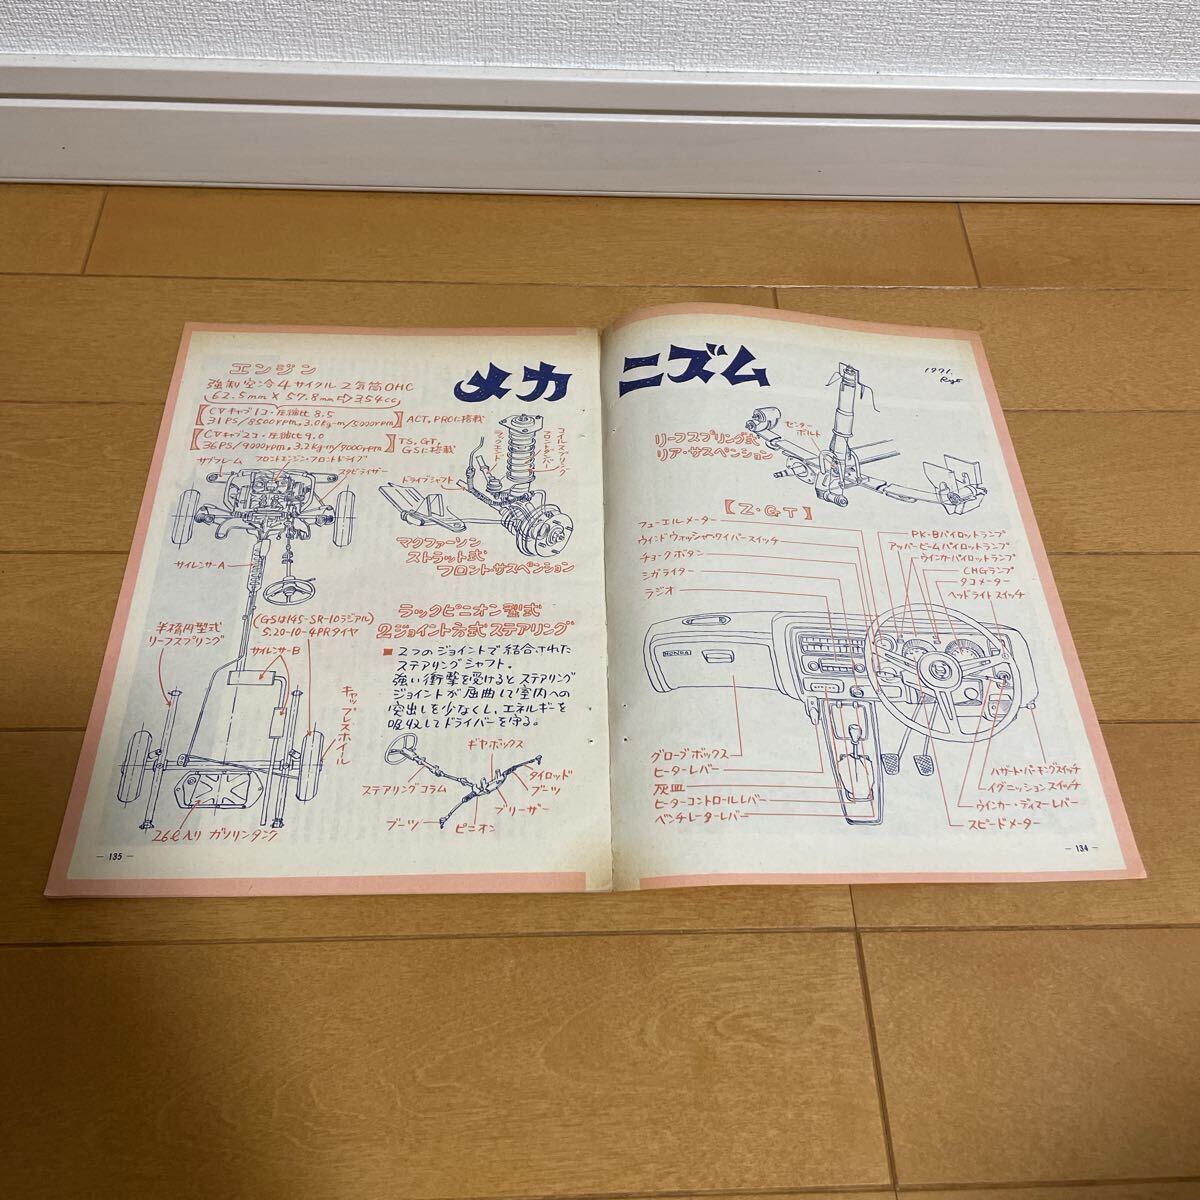 メカニズム
エンジン
強制空冷4サイクル2気筒OHC
62.5mm×57.8mm⇨354cc
【CVキャブ1コ・圧縮比8.5
31PS/8500rpm,3.0kg-m/5000rpm】
ACT,PROに搭載
【CVキャブ2コ・圧縮比9.0
36PS/9000rpm,3.2kg-m/7000rpm】
TS,GT,
GSに搭載
サブフレーム
フロントエンジン・フロントドライブ
スタビライザー
サイレンサーA
(GSは145-SR-10ラジアル)
5.20-10-4PRタイヤ
半楕円型式
リーフスプリング
サイレンサーB
キャップレスホイール
26ℓ入りガソリンタンク
ラックエンド
フロントダンパー
コイルスプリング
ドライブシャフト
マクファーソン
ストラット式
フロント・サスペンション
ラックピニオン型式
2ジョイント方式ステアリング
■2つのジョイントで結合された
ステアリングシャフト。
強い衝撃を受けるとステアリング
ジョイントが屈曲して室内への
突出しを少なくし、エネルギーを
吸収してドライバーを守る。
ギヤボックス
ステアリングコラム
タイロッド
ブーツ
ブリーザー
ブーツ
ピニオン
— 135 —
1971.
センター
ボルト
リーフスプリング式
リア・サスペンション
【Z・GT】
フューエルメーター
ウインドウォッシャ・ワイパースイッチ
チョークボタン
シガライター
ラジオ
PK-Bパイロットランプ
アッパービームパイロットランプ
ウインカーパイロットランプ
CHGランプ
タコメーター
ヘッドライトスイッチ
HONDA
グローブボックス
ヒーターレバー
灰皿
ヒーターコントロールレバー
ベンチレーターレバー
ハザート・パーキングスイッチ
イグニッションスイッチ
ウインカー・ディマーレバー
スピードメーター
— 134 —